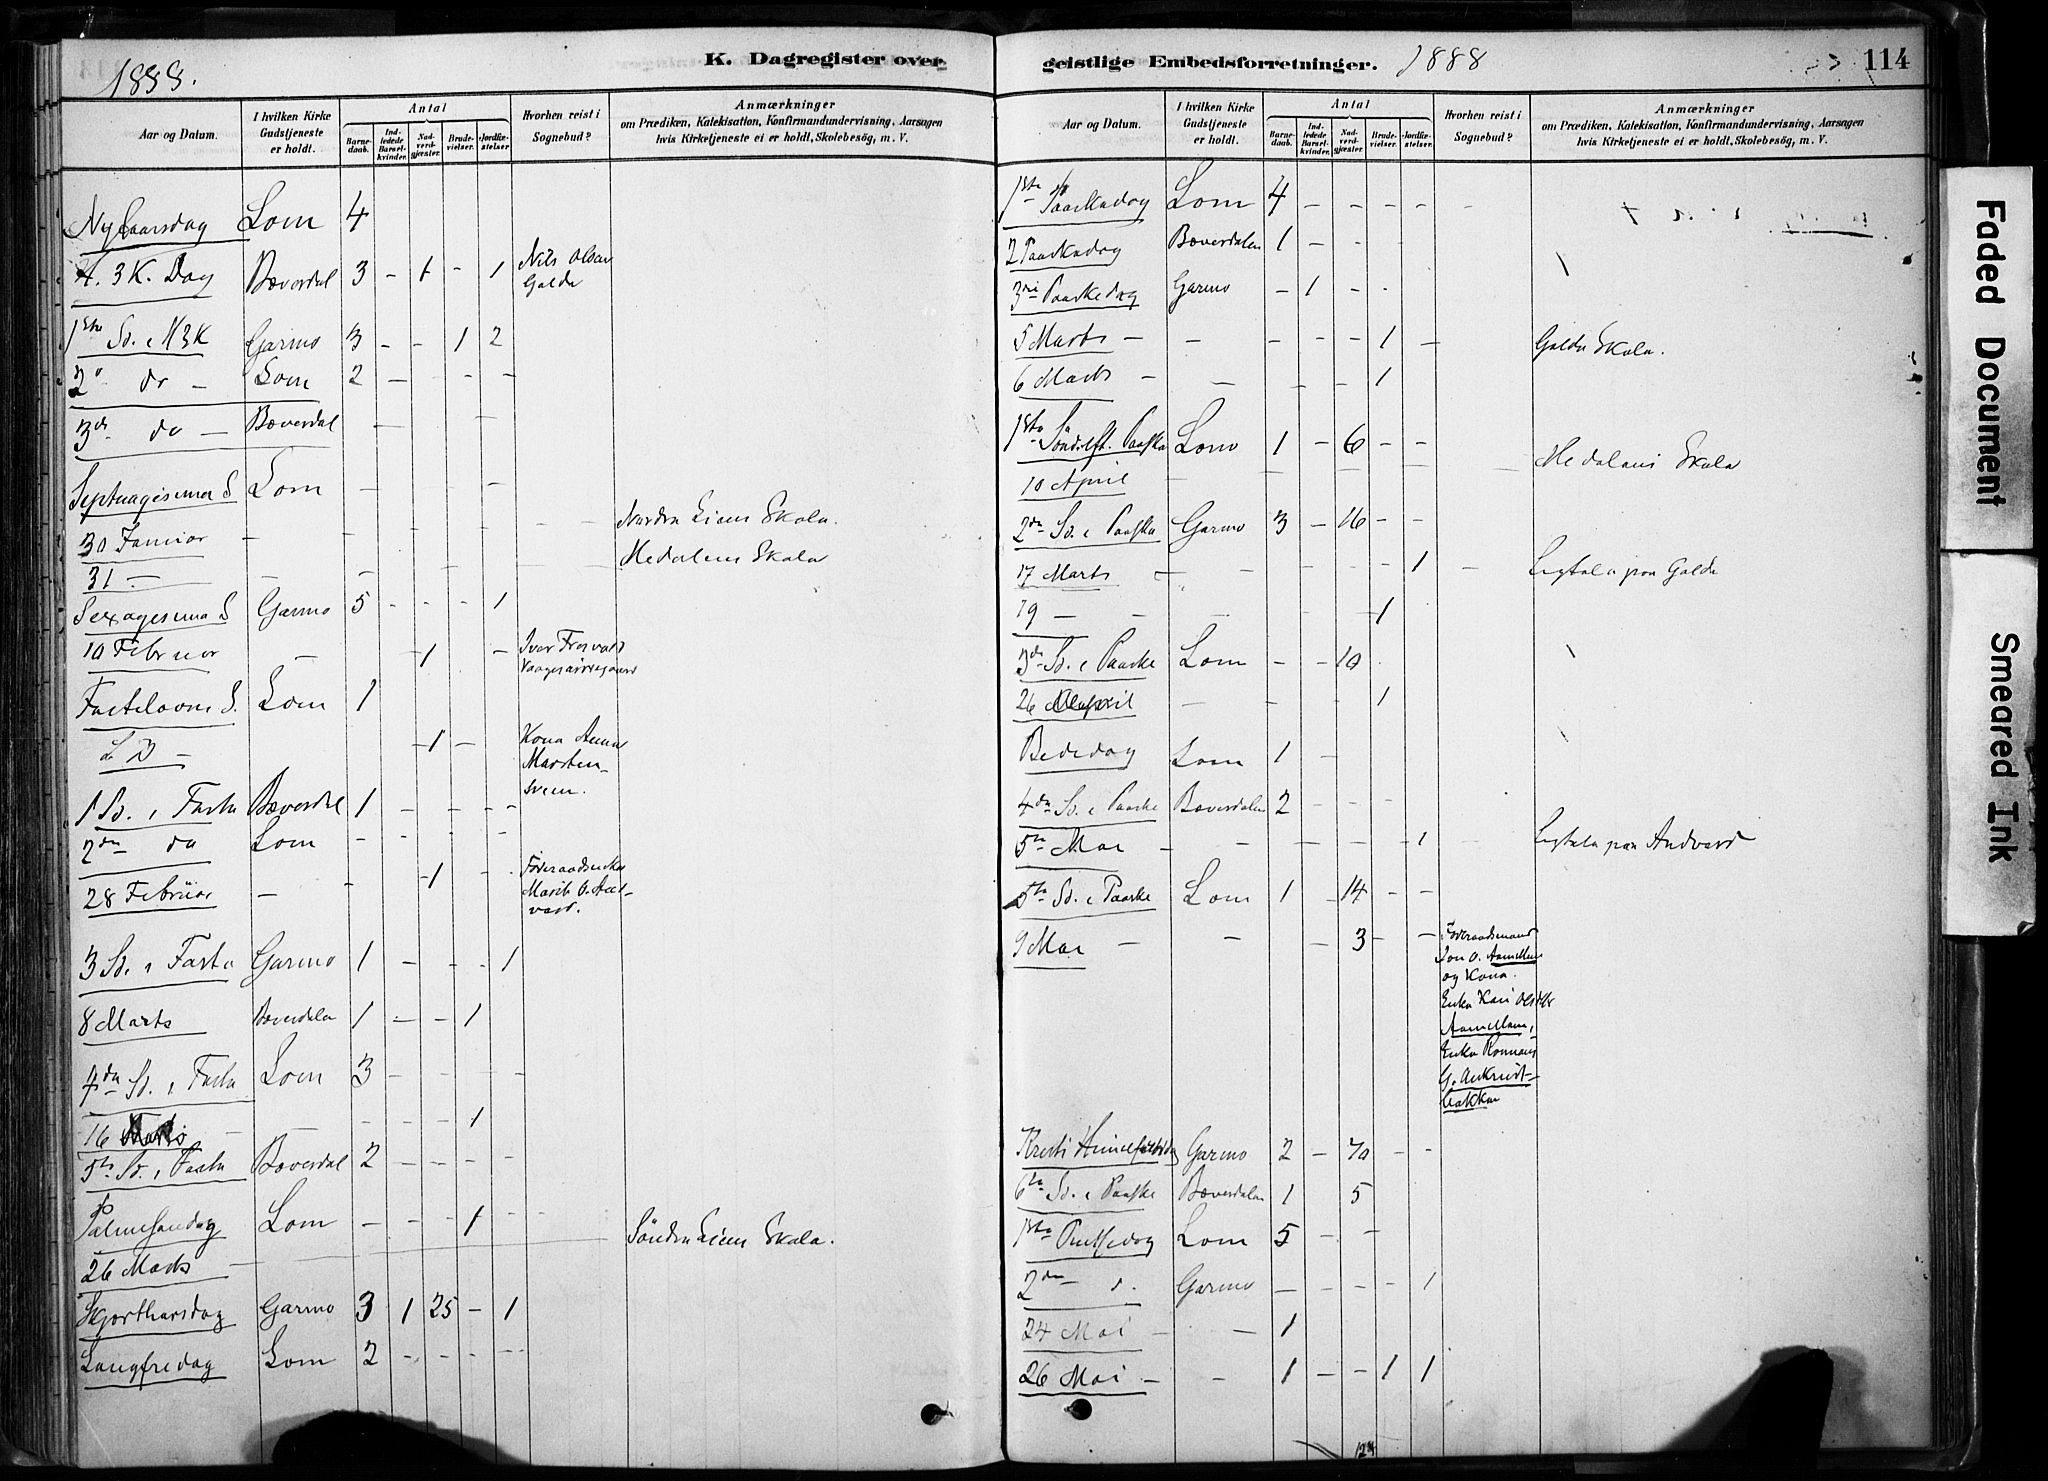 1888.
K. Dagregister over
Aar og Datum.
I hvilken Kirke Gudstjeneste er holdt.
Antal
Barnedaab.
Indledede Barselkvinder.
Nadverdgjæster.
Brudevielser.
Jordfæstelser.
Hvorhen reist i Sognebud?
Anmærkninger
om Prædiken, Katekisation, Konfirmandundervisning, Aarsagen
hvis Kirketjeneste ei er holdt, Skolebesøg, m. V.
Nytaarsdag Lom 4
H. 3 K. Dag Bæverdal 3 - 1 - 1 Nils Olsen Galde
1ste S. e H3K Garmo 3 - - 1 2
2 do - Lom 2 - - -
3de do - Bæverdal - -
Septuagesima S Lom - -
30 Januar - - - - - - - Nordre Liens Skole.
31 - - - - - Medalens Skole
Sexagesima S Garmo 5 - - - 1
10 Februar - - 1 - Iver
Fastelavns S. Lom 1
- 1 - Kona Anne Marstensveen.
1 S. i Faste Bæverdal 1 - - - -
2den do Lom - - - -
28 Februar - - 1 - Marit O.
3 S. i Faste Garmo 1 - - - 1
8 Marts Bæverdalen 1 - - 1
4de S. i Faste Lom 3 - - - -
16 Marts - - - - 1
5te S. i Faste Bæverdal 2 - - - -
Palmesøndag Lom - - - 1 - -
26 Marts - Søndre Liens Skole.
Skjærthorsdag Garmo 3 1 25 - 1
Langfredag Lom 2 - - - -
geistlige Embedsforretninger. 1888
114
Aar og Datum.
I hvilken Kirke Gudstjeneste er holdt.
Antal
Barnedaab.
Indledede Barselkvinder.
Nadverdgjæster.
Brudevielser.
Jordfæstelser.
Hvorhen reist i Sognebud?
Anmærkninger
om Prædiken, Katekisation, Konfirmandundervisning, Aarsagen
hvis Kirketjeneste ei er holdt, Skolebesøg, m. V.
1ste Paaskedag Lom 4 - - - - -
2 Paaskedag Bæverdalen 1 - -
3die Paaskedag Garmo - 1 - -
5 Marts - - - - - 1 - Galde Skole.
6 Marts - - - - 1
1ste Sønd. eft. Paaske Lom 1 - 6 - -
10 April - - - - - - - Medalens Skole
2den S. e Paaske Garmo 3 - 16 - -
17 Marts - - - - - - 1 - Ligtale paa Galde
19 - - - - - 1
3de S. e Paaske Lom - - 10
26 April - - - 1
Bededag Lom 1 -
4de S. e Paaske Bæverdalen 2 - - -
5te Mai - - - - - - 1 - - Ligtale paa Andvord
5te S. e Paaske Lom 1 - 14 - -
9 Mai - - - 3 - - Føderaadsmand
Jon O.
og Kona.
Enke Kari Olsdtr
Enke
bakken
Kristi Himmelfartsdag Garmo 2 - 70 - -
6te S. e Paaske Bæverdalen 1 5
1ste Pintsedag Lom 5 - -
2den Garmo - - - - 1
24 Mai - - 1
26 Mai - - 1 - - 1 1
124
Faded Document
Smeared Ink